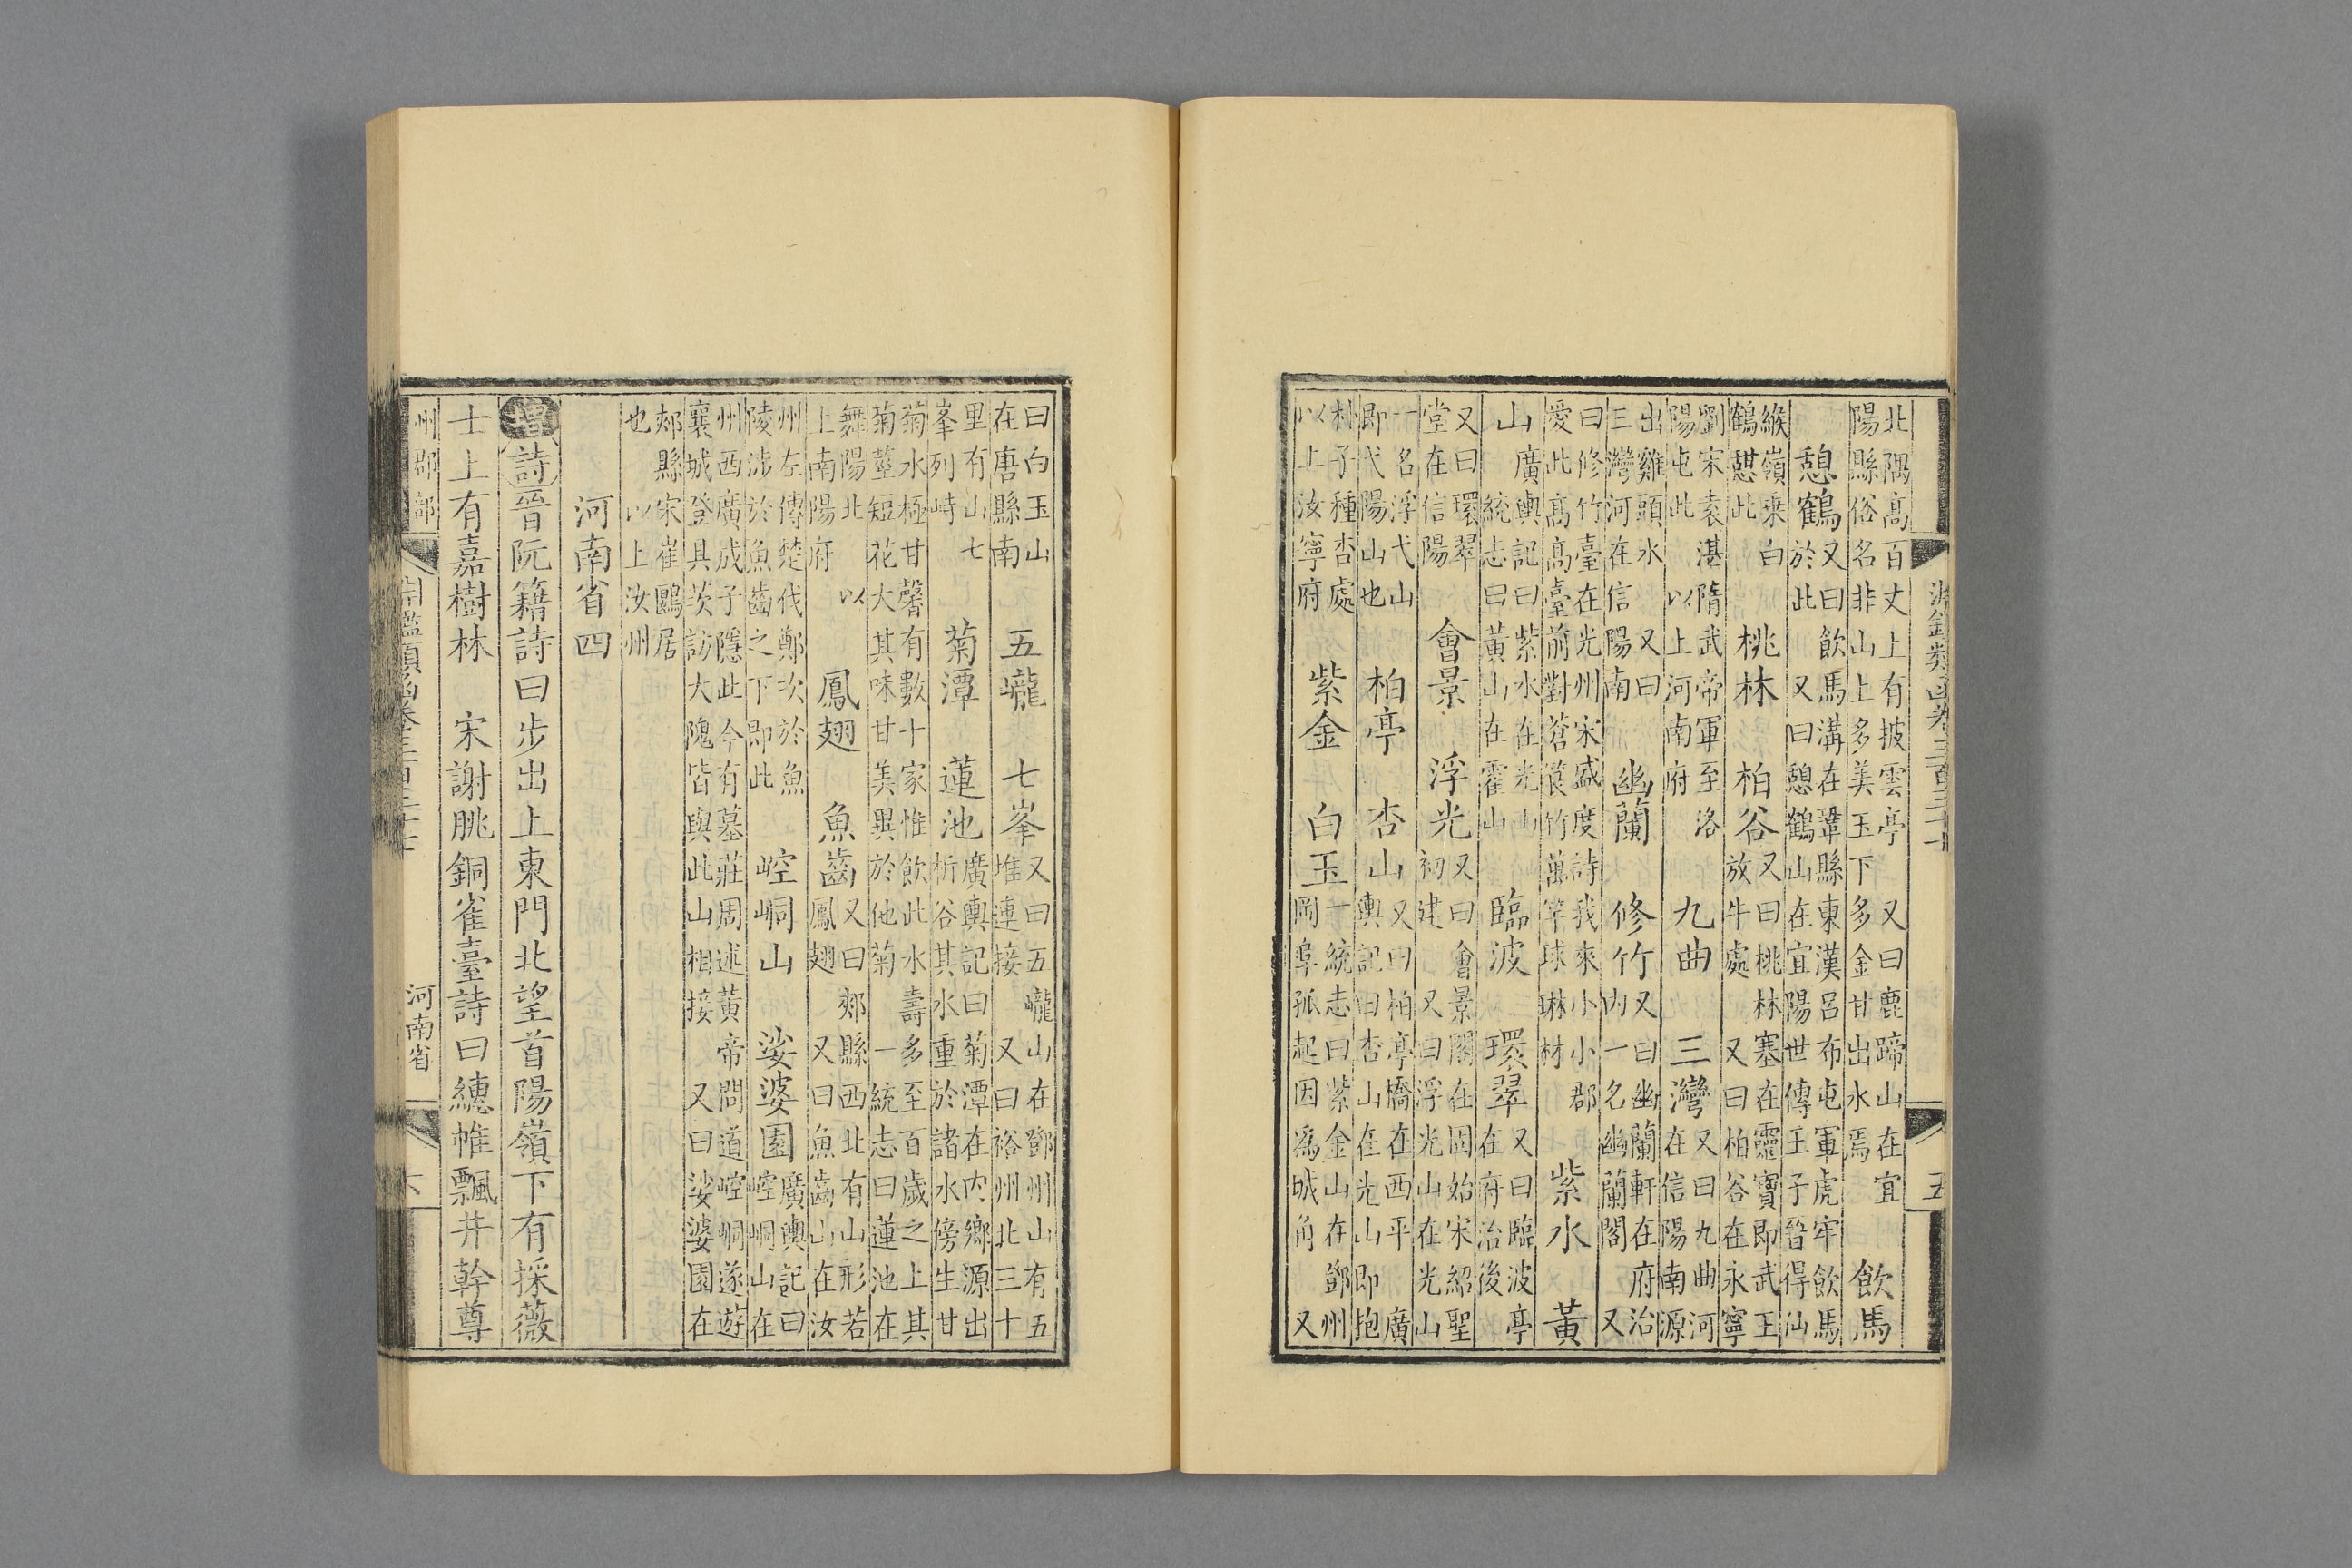 北隅高百丈上有披雲亭 又曰鹿蹄山在宜陽縣俗名非山上多美玉下多金甘出水焉 飲馬
憩鶴 又曰飲馬溝在鞏縣東漢呂布屯軍虎牢飲馬於此 又曰憩鶴山在宜陽世傳王子晉得仙
緱嶺乘白鶴憇此 桃林 柏谷 又曰桃林塞在靈寶即武王放牛處 又曰柏谷在永寧
劉宋袁湛隋武帝軍至洛陽屯此 以上河南府 九曲 三灣 又曰九曲河在信陽南源
出雞頭水 又曰三灣河在信陽南 幽蘭 修竹 又曰幽蘭軒在府治内一名幽蘭閣 又
曰修竹臺在光州宋盛度詩我來小小郡愛此高高臺前對蒼筤竹萬竿球琳材 紫水 黃
山 廣輿記曰紫水在光山 統志曰黃山在霍山 臨波 環翠 又曰臨波亭在府治後
又曰環翠堂在信陽 會景 浮光 又曰會景閣在固始宋紹聖初建 又曰浮光山在光山
一名浮弋山即弋陽山也 柏亭 杏山 又曰柏亭橋在西平 廣輿記曰杏山在光山即抱
朴子種杏處以上汝寧府 紫金 白玉 一統志曰紫金山在鄧州岡阜孤起因爲城角 又
曰白玉山在唐縣南 五巄 七峯 又曰五巄山在鄧州山有五堆連接 又曰裕州北三十
里有山七峯列峙 菊潭 蓮池 廣輿記曰菊潭在内鄉源出析谷其水重於諸水傍生甘
菊水極甘馨有數十家惟飲此水壽多至百歲之上其菊莖短花大其味甘美異於他菊 一統志曰蓮池在
舞陽北 以上南陽府 鳳翅 魚齒 又曰郟縣西北有山形若鳳翅 又曰魚齒山在汝
州左傳楚伐鄭次於魚陵涉於魚齒之下即此 崆峒山 娑婆園 廣輿記曰崆峒山在
州西廣成子隱此今有墓莊周述黃帝問道崆峒遂遊襄城登具茨訪大隗皆與此山相接 又曰娑婆園在
郟縣宋崔鷗居也 以上汝州
河南省四
增詩晉阮籍詩曰步出上東門北望首陽嶺下有採薇
士上有嘉樹林 宋謝朓銅雀臺詩曰繐帷飄井幹尊
州郡部 河南省 六